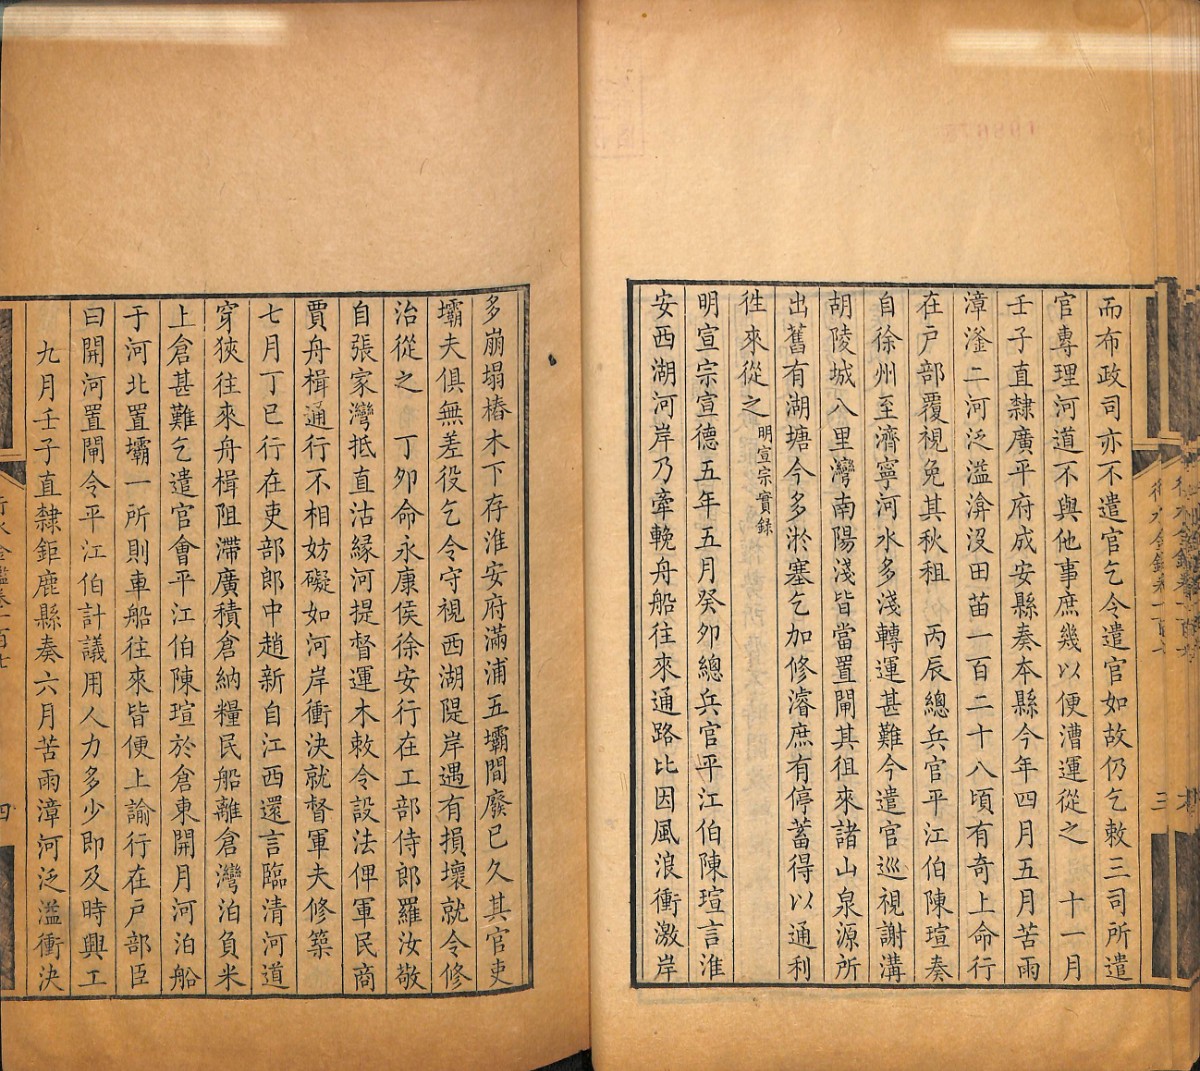 而布政司亦不遣官乞令遣官如故仍乞敕三司所遣
官專理河道不與他事庶幾以便漕運從之　十一月
壬子直隸廣平府成安縣奏本縣今年四月五月苦雨
漳滏二河泛溢渰没田苗一百二十八頃有奇上命行
在戶部覆視免其秋租　丙辰總兵官平江伯陳瑄奏
自徐州至濟寧河水多淺轉運甚難今遣官巡視謝溝
胡陵城八里灣南陽淺皆當置閘其徂來諸山泉源所
出舊有湖塘今多淤塞乞加修濬庶有停蓄得以通利
徃來從之明宣宗實錄
明宣宗宣德五年五月癸夘總兵官平江伯陳瑄言淮
安西湖河岸乃牽輓舟船往來通路比因風浪衝激岸
多崩塌樁木下存淮安府滿浦五壩間廢已久其官吏
壩夫俱無差役乞令守視西湖隄岸遇有損壞就令修
治從之　丁夘命永康侯徐安行在工部侍郎羅汝敬
自張家灣抵直沽緣河提督運木敕令設法俾軍民商
賈舟楫通行不相妨礙如河岸衝決就督軍夫修築
七月丁巳行在吏部郎中趙新自江西還言臨清河道
穿狹往來舟楫阻滯廣積倉納糧民船離倉灣泊負米
上倉甚難乞遣官會平江伯陳瑄於倉東開月河泊船
于河北置壩一所則車船往來皆便上諭行在戶部臣
曰開河置閘令平江伯計議用人力多少即及時興工
九月壬子直隸鉅鹿縣奏六月苦雨漳河泛溢衝決
行水金鑑卷一百七
四